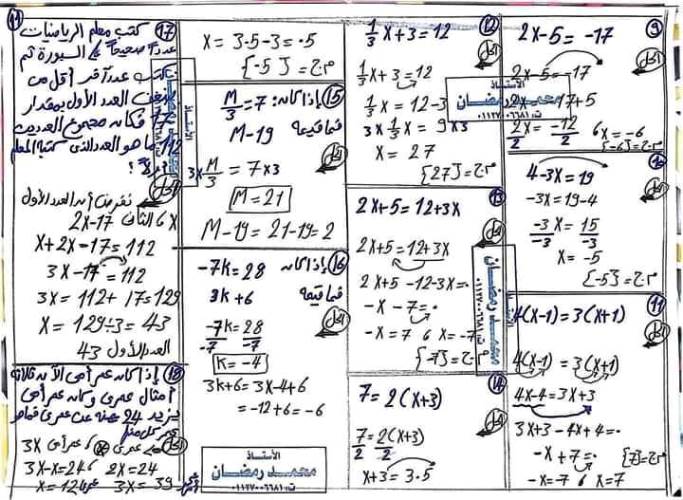 ⑨
2x-5 = -17
الحل
2x-5 = -17
2x = -17+5
2x/2 = -12/2 6 x = -6
م.ح = {-6}
4-3x = 19
الحل
-3x = 19-4
-3x/-3 = 15/-3
x = -5
م.ح = {-5}
⑪
4(x-1) = 3(x+1)
الحل
4(x-1) = 3(x+1)
4x-4 = 3x+3
3x+3-4x+4=0
-x+7=0
-x=-7 6 x=7
م.ح = {7}
⑫
1/3 x+3 = 12
الحل
1/3 x+3 = 12
1/3 x = 12-3
3x 1/3 x = 9x3
x = 27
م.ح = {27}
الأستاذ
محمد رمضان
ت: ٠١١٢٧٠٠٦٦٨١
⑬
2x+5 = 12+3x
الحل
2x+5 = 12+3x
2x+5-12-3x=0
-x-7=0
-x=7 6 x=-7
م.ح = {-7}
⑭
7 = 2(x+3)
الحل
7/2 = 2(x+3)/2
x+3 = 3.5
x = 3.5-3 = 0.5
⑮ إذا كان: M/3 = 7
فما قيمة M-19
الحل
3x M/3 = 7x3
M = 21
M-19 = 21-19 = 2
⑯ إذا كان
-7k = 28
فما قيمة
3k+6
الحل
-7k/-7 = 28/-7
k = -4
3k+6 = 3x-4+6
= -12+6 = -6
الأستاذ
محمد رمضان
ت: ٠١١٢٧٠٠٦٦٨١
⑰ كتب معلم الرياضيات
عدداً صحيحاً على السبورة ثم
كتب عدداً آخر أقل من
ضعف العدد الأول بمقدار
17 فكان مجموع العددين
112 ما هو العدد الذى كتبه المعلم
أولاً؟
الحل
نفرض أن العدد الأول
x 6 الثانى 2x-17
x+2x-17=112
3x-17=112
3x = 112+17=129
x = 129÷3 = 43
العدد الأول 43
⑱ إذا كان عمر أحى الآن ثلاثة
أمثال عمرى وكان عمر أحى
يزيد 24 سنة عن عمرى فما
الحل
3x
2x=24